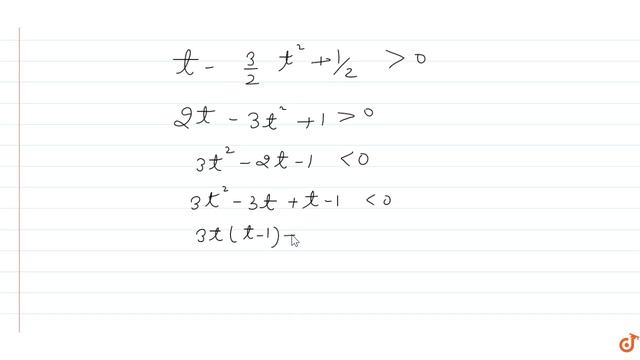 t - 3/2 t² + 1/2 > 0
2t - 3t² + 1 > 0
3t² - 2t - 1 < 0
3t² - 3t + t - 1 < 0
3t ( t - 1 ) -